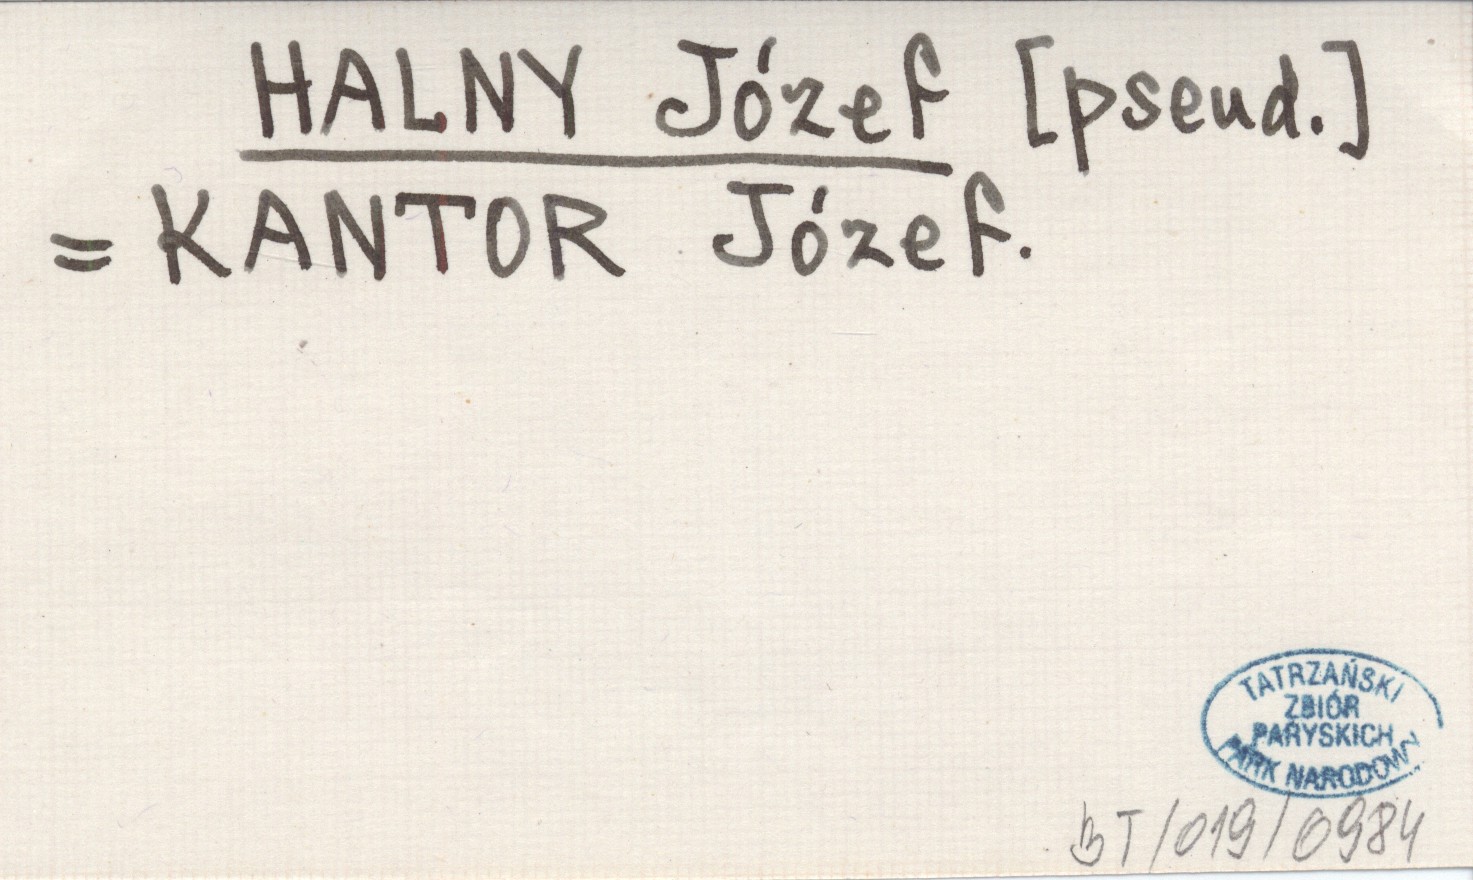 HALNY Józef [pseud.]
= KANTOR Józef.
TATRZAŃSKI
ZBIÓR
PARYSKICH
PARK NARODOWY
BT/019/0984